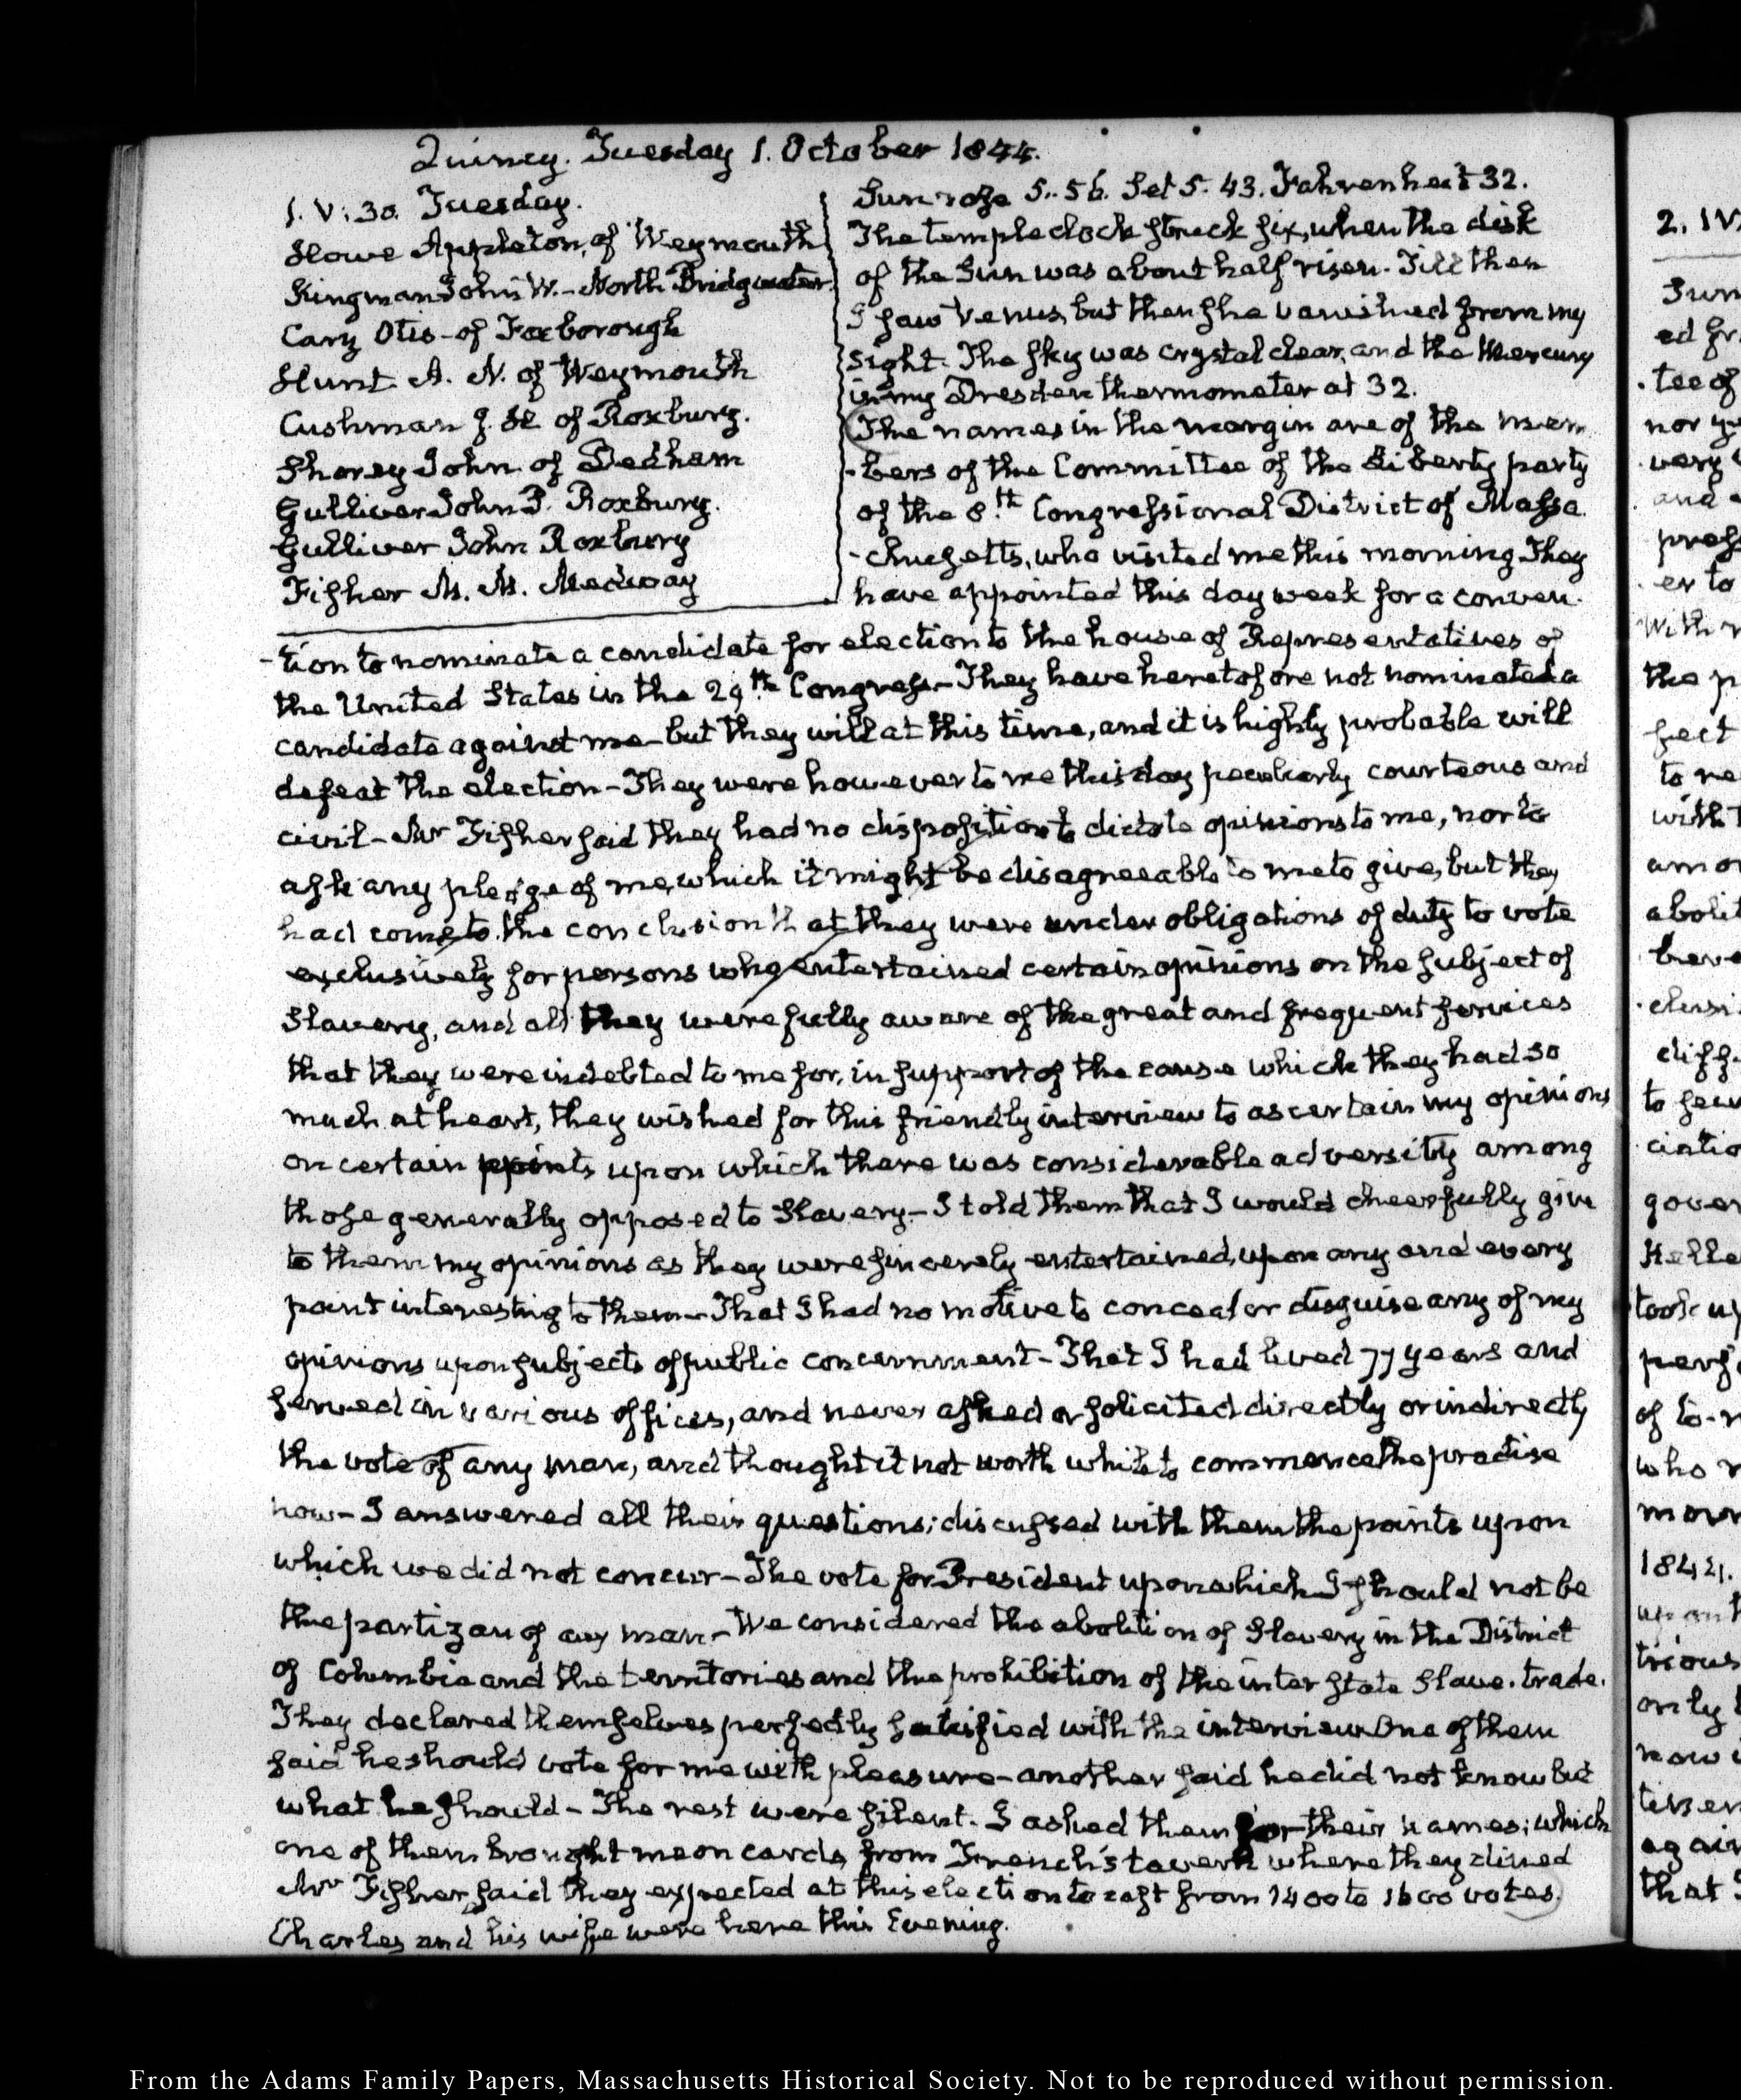 Quincy. Tuesday 1. October 1844.
1. V: 30. Tuesday.
Howe Appleton, of Weymouth
Kingman John W. - North Bridgewater
Cary Otis - of Foxborough
Hunt A. N. of Weymouth
Cushman J. H. of Roxbury.
Shorey John of Dedham
Gulliver John P. Roxbury.
Gulliver John Roxbury
Fisher M. M. Medway
Sun rose 5. 56. Set 5. 43. Fahrenheit 32.
The temple clock struck six, when the disk
of the Sun was about half risen. Till then
I saw Venus, but then she vanished from my
sight. The sky was crystal clear, and the Mercury
in my Dresden thermometer at 32.
The names in the margin are of the mem
-bers of the Committee of the Liberty party
of the 8.th Congressional District of Massa
-chusetts, who visited me this morning They
have appointed this day week for a conven-
-tion to nominate a candidate for election to the house of Representatives of
the United States in the 29th Congress - They have heretofore not nominated a
candidate against me - but they will at this time, and it is highly probable will
defeat the election - They were however to me this day peculiarly courteous and
civil - Mr Fisher said they had no disposition to dictate opinions to me, nor to
ask any pledge of me, which it might be disagreeable to me to give, but they
had come to the conclusion that they were under obligations of duty to vote
exclusively for persons who entertained certain opinions on the subject of
Slavery, and as they were fully aware of the great and frequent services
that they were indebted to me for, in support of the cause which they had so
much at heart, they wished for this friendly interview to ascertain my opinions
on certain points upon which there was considerable adversity among
those generally opposed to Slavery - I told them that I would cheerfully give
to them my opinions as they were sincerely entertained, upon any and every
point interesting to them - That I had no motive to conceal or disguise any of my
opinions upon subjects of public concernment - That I had lived 77 years and
served in various offices, and never asked or solicited directly or indirectly
the vote of any man, and thought it not worth while to commence the practise
now - I answered all their questions; discussed with them the points upon
which we did not concur - The vote for President upon which I should not be
the partizan of any man - We considered the abolition of Slavery in the District
of Columbia and the territories and the prohibition of the inter state Slave-trade.
They declared themselves perfectly satisfied with the interview One of them
said he should vote for me with pleasure - another said he did not know but
what he should - The rest were silent. I asked them for their names; which
one of them brought me on cards from French's tavern where they dined
Mr Fisher said they expected at this election to cast from 1400 to 1600 votes.
Charles and his wife were here this Evening.
2. IV
Sun
ed fr
-tee of
nor
very
and
er to
With
the p
fect
to re
with
amo
abolit
-clusi
diff
to
ciatio
gover
took up
of to-
who
morn
1844.
trious
only
now
again
that
From the Adams Family Papers, Massachusetts Historical Society. Not to be reproduced without permission.